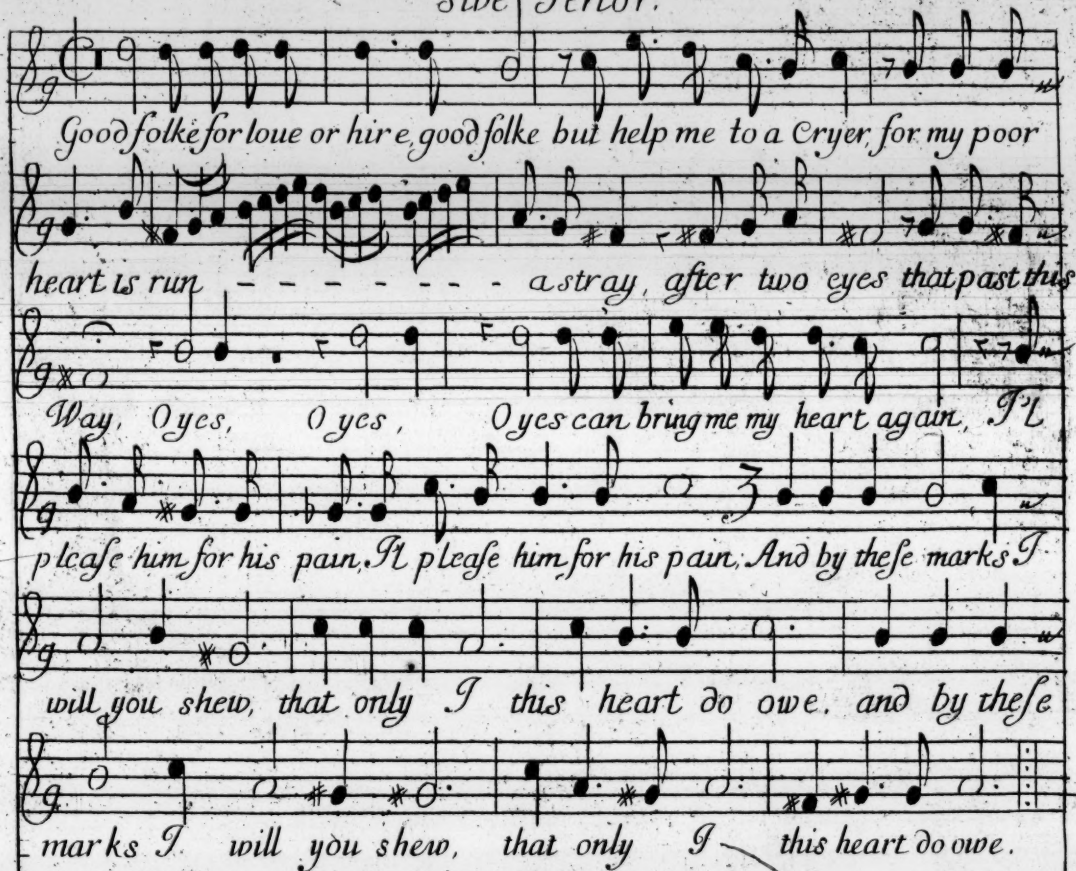 Tenor.
Good folke for loue or hire, good folke but help me to a Cryer, for my poor
heart is run - - - - - - - - astray, after two eyes that past this
Way, O yes, O yes, O yes can bring me my heart again, I'l
pleaſe him for his pain, I'l pleaſe him for his pain, And by theſe marks I
will you shew, that only I this heart do owe. and by theſe
marks I will you shew, that only I this heart do owe.